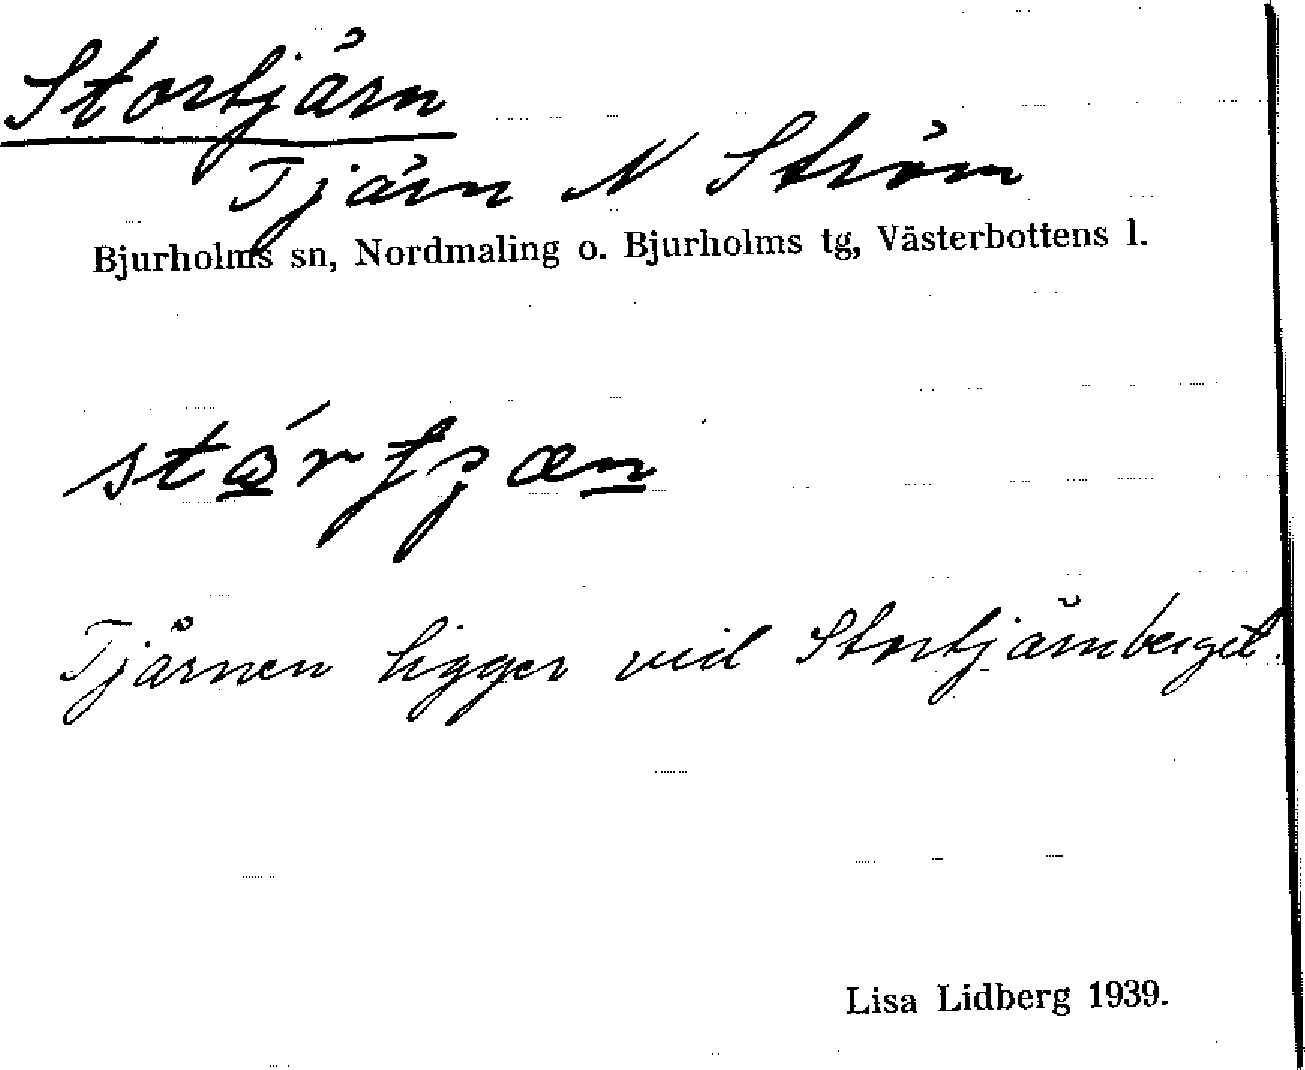 Stortjärn
Tjärn N Ström
Bjurholms sn, Nordmaling o. Bjurholms tg, Västerbottens l.
Tjärnen ligger vid Stortjärnberget.
Lisa Lidberg 1939.